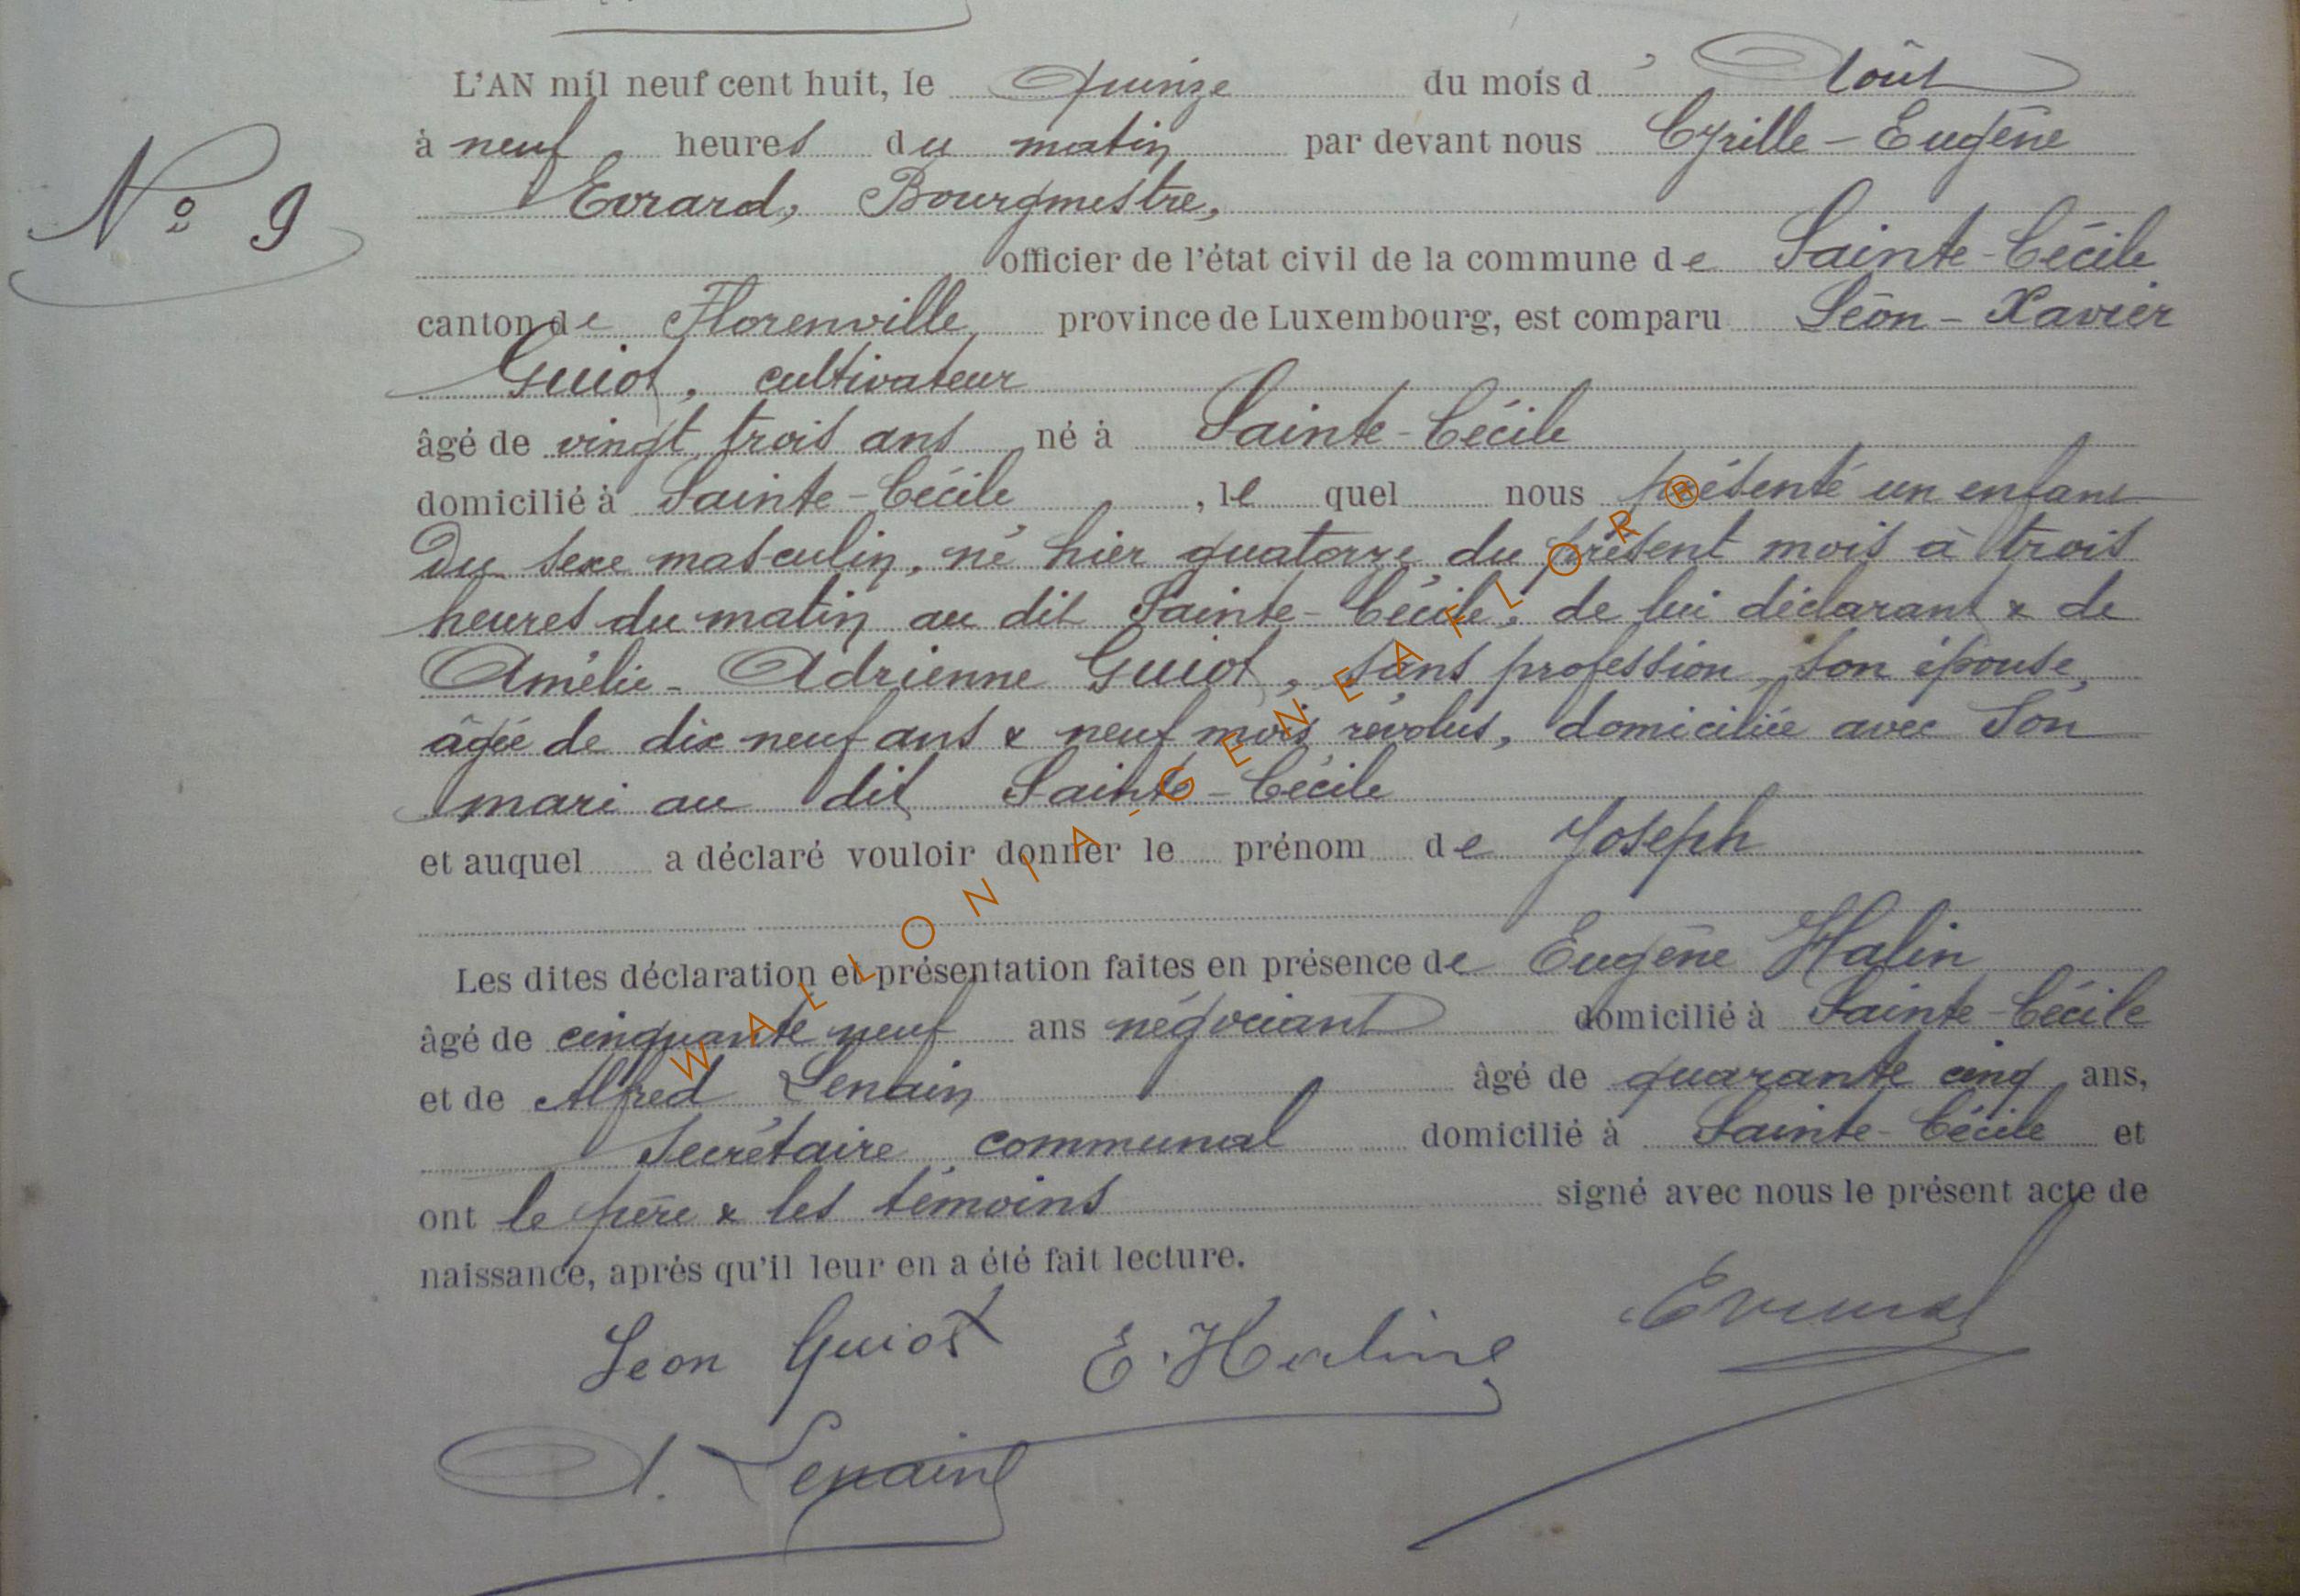 L'AN mil neuf cent huit, le quinze du mois d'Août
à neuf heures du matin par devant nous Cyrille-Eugène
N° 9
Evrard, Bourgmestre,
officier de l'état civil de la commune de Sainte-Cécile
canton de Florenville, province de Luxembourg, est comparu Léon-Xavier
Guiot, cultivateur
âgé de vingt trois ans né à Sainte-Cécile
domicilié à Sainte-Cécile, le quel nous présenté un enfant
Du sexe masculin, né hier quatorze du présent mois à trois
heures du matin au dit Sainte-Cécile, de lui déclarant & de
Amélie-Adrienne Guiot, sans profession, son épouse,
âgée de dix neuf ans & neuf mois révolus, domiciliée avec son
mari au dit Sainte-Cécile
et auquel a déclaré vouloir donner le prénom de Joseph
Les dites déclaration et présentation faites en présence de Eugène Halin
âgé de cinquante neuf ans négociant domicilié à Sainte-Cécile
et de Alfred Lenain âgé de quarante cinq ans,
secrétaire communal domicilié à Sainte-Cécile et
ont le père & les témoins signé avec nous le présent acte de
naissance, après qu'il leur en a été fait lecture.
Leon Guiot E. Halin Evrard
A. Lenain
WALLONIA-GENEAFLOR®